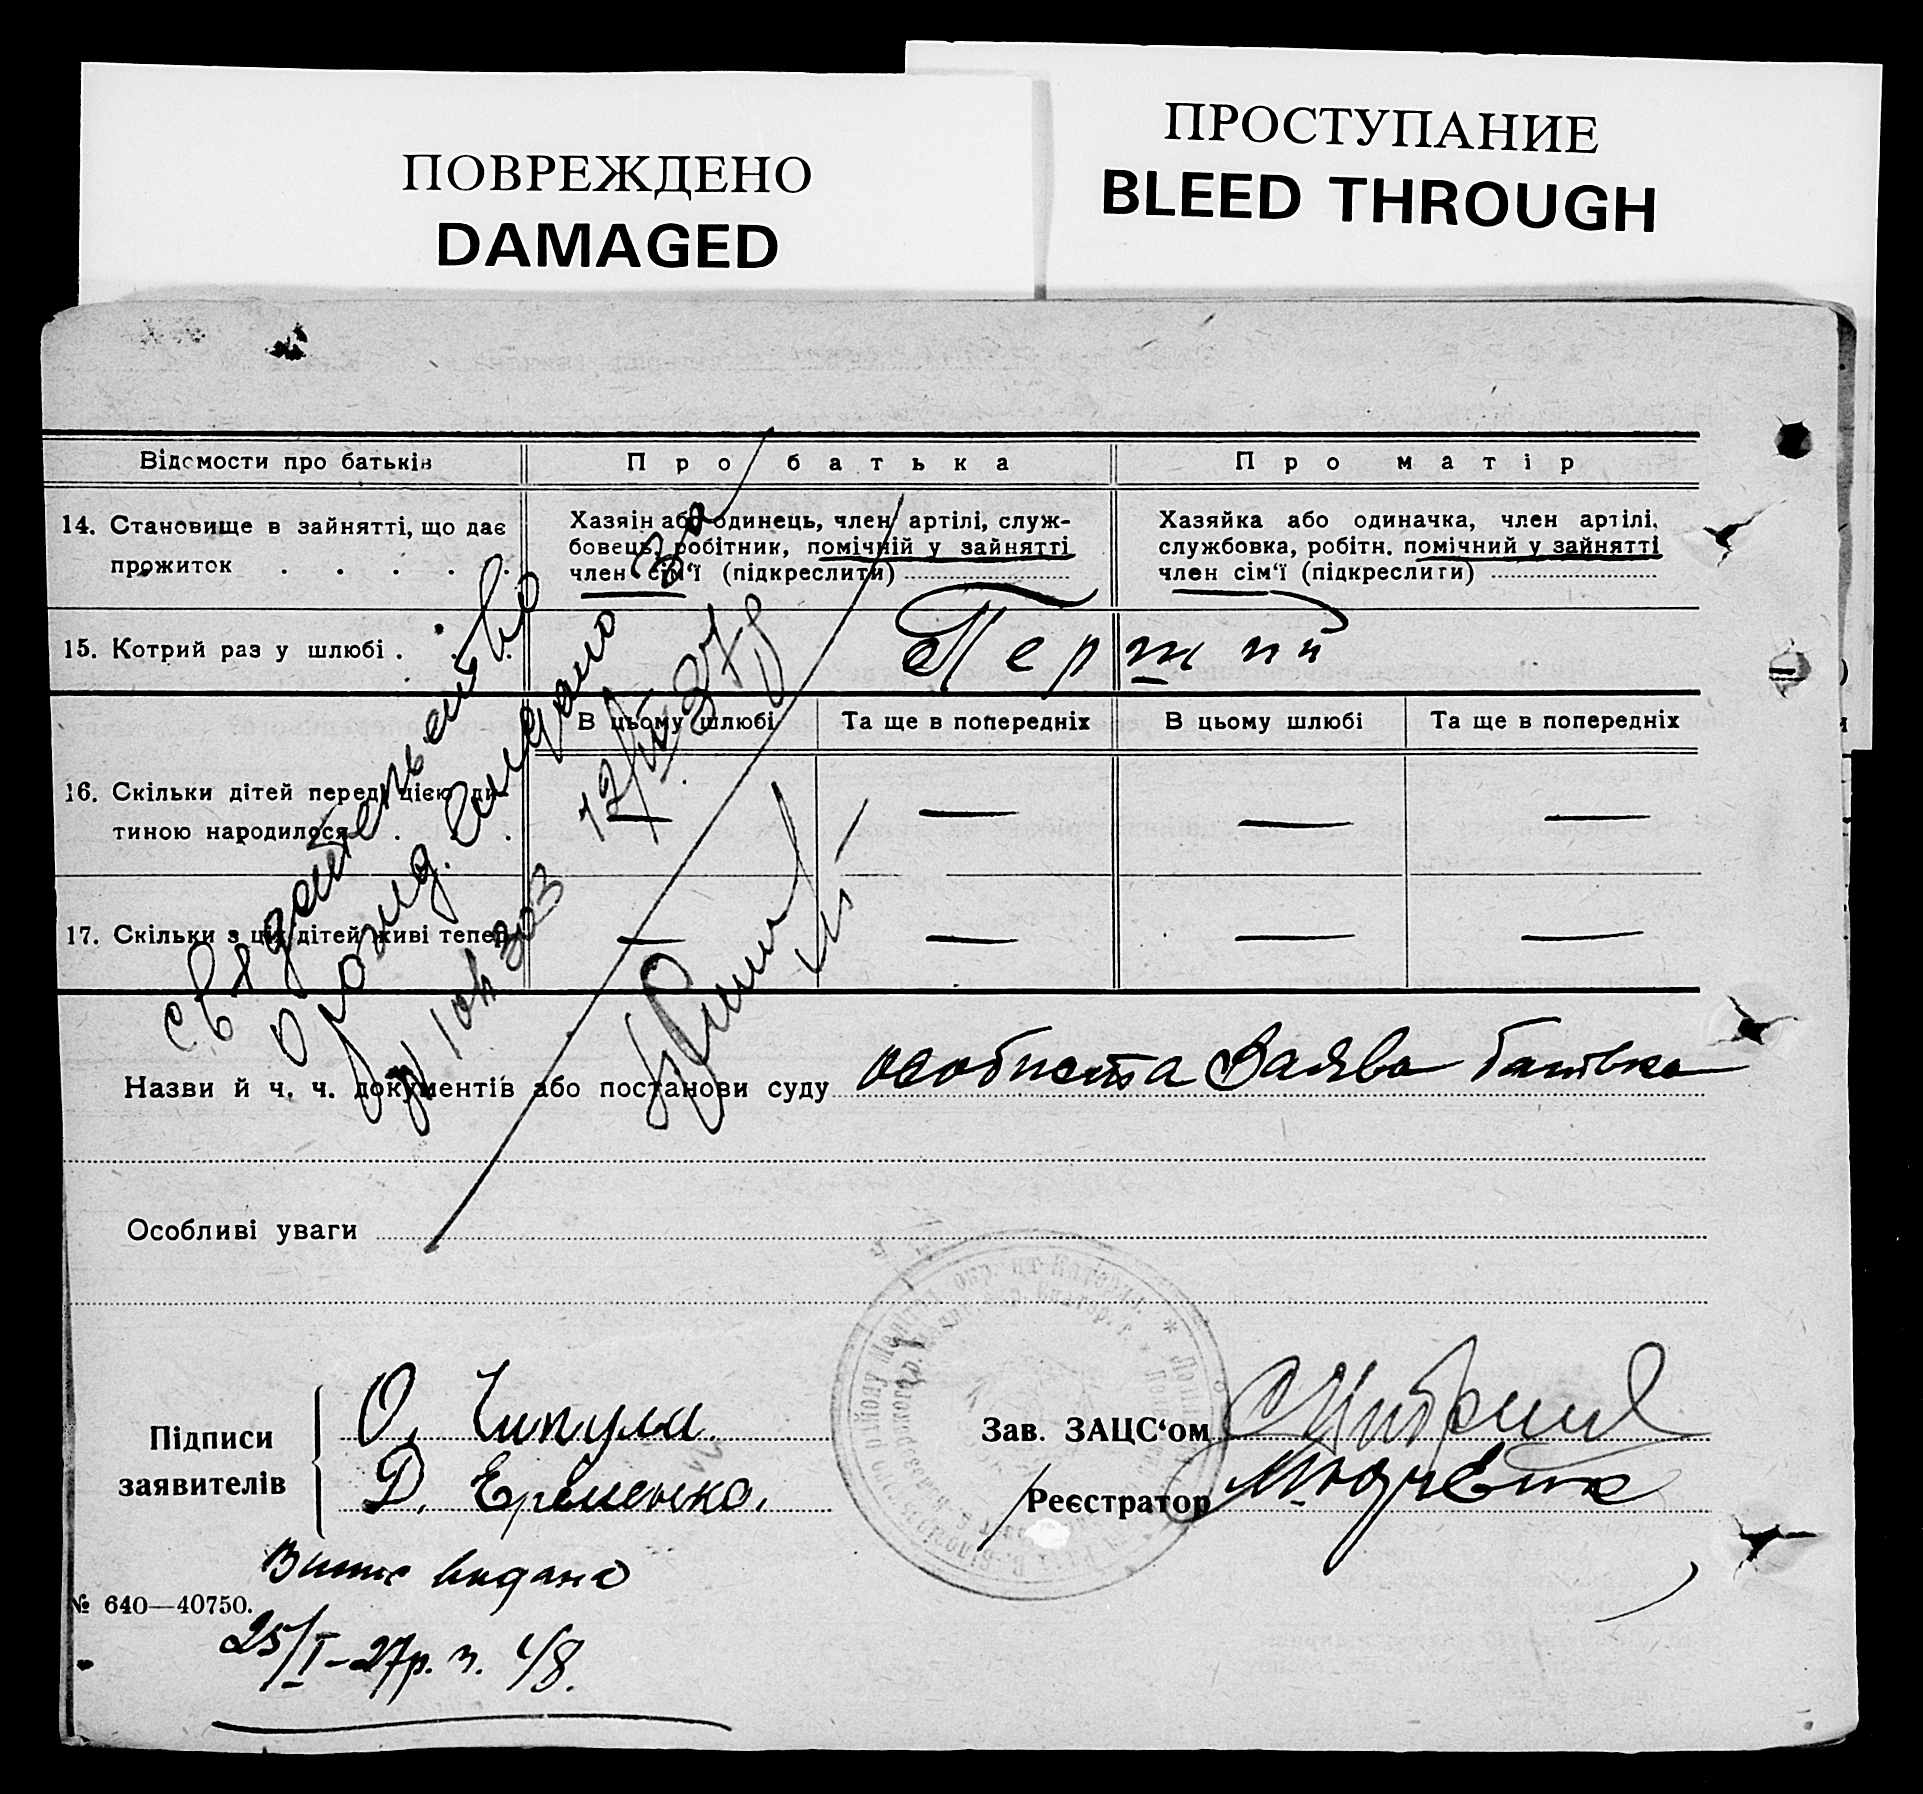 ПОВРЕЖДЕНО
DAMAGED
ПРОСТУПАНИЕ
BLEED THROUGH
Відомости про батьків
Про батька
Про матір
14. Становище в зайнятті, що дає
прожиток . . . . .
Хазяін або одинець, член артілі, служ-
бовець, робітник, помічній у зайнятті
член сім'ї (підкреслити)
Хазяйка або одиначка, член артілі,
службовка, робітн. помічний у зайнятті
член сім'ї (підкреслити)
15. Котрий раз у шлюбі . . .
В цьому шлюбі
Та ще в попередніх
В цьому шлюбі
Та ще в попередніх
16. Скільки дітей перед цією ди-
тиною народилося . . .
— — — —
17. Скільки з ціх дітей живі тепер
— — — —
свидетельство
Назви й ч. ч. документів або постанови суду особиста Заява батька
Особливі уваги
Підписи
заявителів
О. Чипула
Д. Ерёменко.
Зав. ЗАЦС'ом
Реєстратор
Випис видано
№ 640—40750.
25/I-27р. n. 4/8.